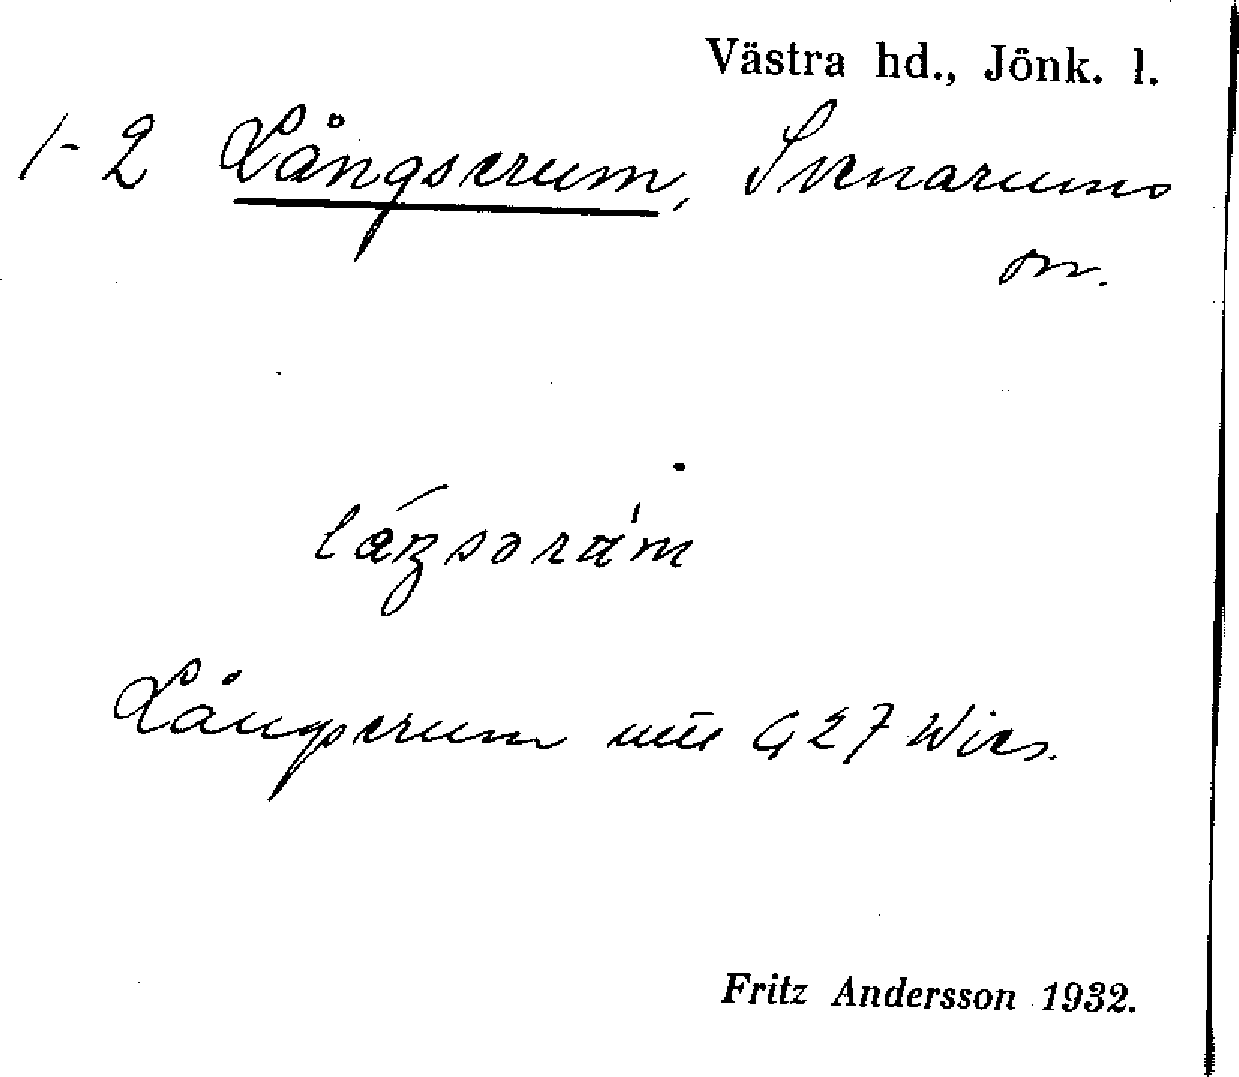 Västra hd., Jönk. l.
1-2 Långserum, Svenarums
sn.
Långserum
G 27 Wies.
Fritz Andersson 1932.